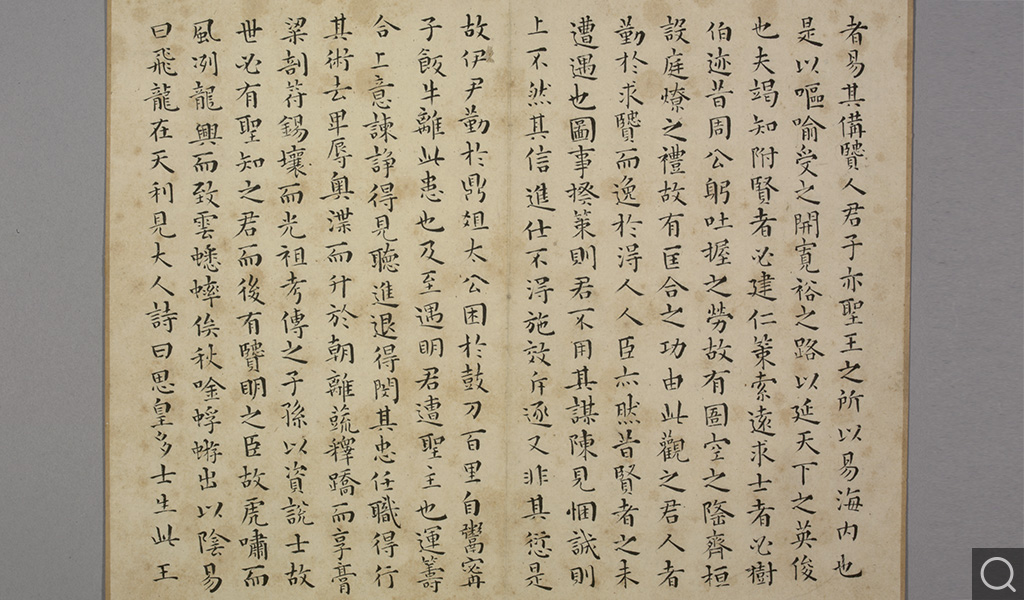 者易其備賢人君子亦聖王之所以易海內也
是以嘔喻受之開寬裕之路以延天下之英俊
也夫竭知附賢者必建仁策索遠求士者必樹
伯迹昔周公躬吐握之勞故有圄空之隆齊桓
設庭燎之禮故有匡合之功由此觀之君人者
勤於求賢而逸於得人人臣亦然昔賢者之未
遭遇也圖事揆策則君不用其謀陳見悃誠則
上不然其信進仕不得施效斥逐又非其愆是
故伊尹勤於鼎俎太公困於鼓刀百里自鬻甯
子飯牛離此患也及至遇明君遭聖主也運籌
合上意諫諍得見聽進退得関其忠任職得行
其術去卑辱奧渫而升於朝離蔬釋蹻而享膏
梁剖苻錫壤而光祖考傳之子孫以資說士故
世必有聖知之君而後有賢明之臣故虎嘯而
風冽龍興而致雲蟋蟀俟秋唫蜉蝣出以陰易
曰飛龍在天利見大人詩曰思皇多士生此王